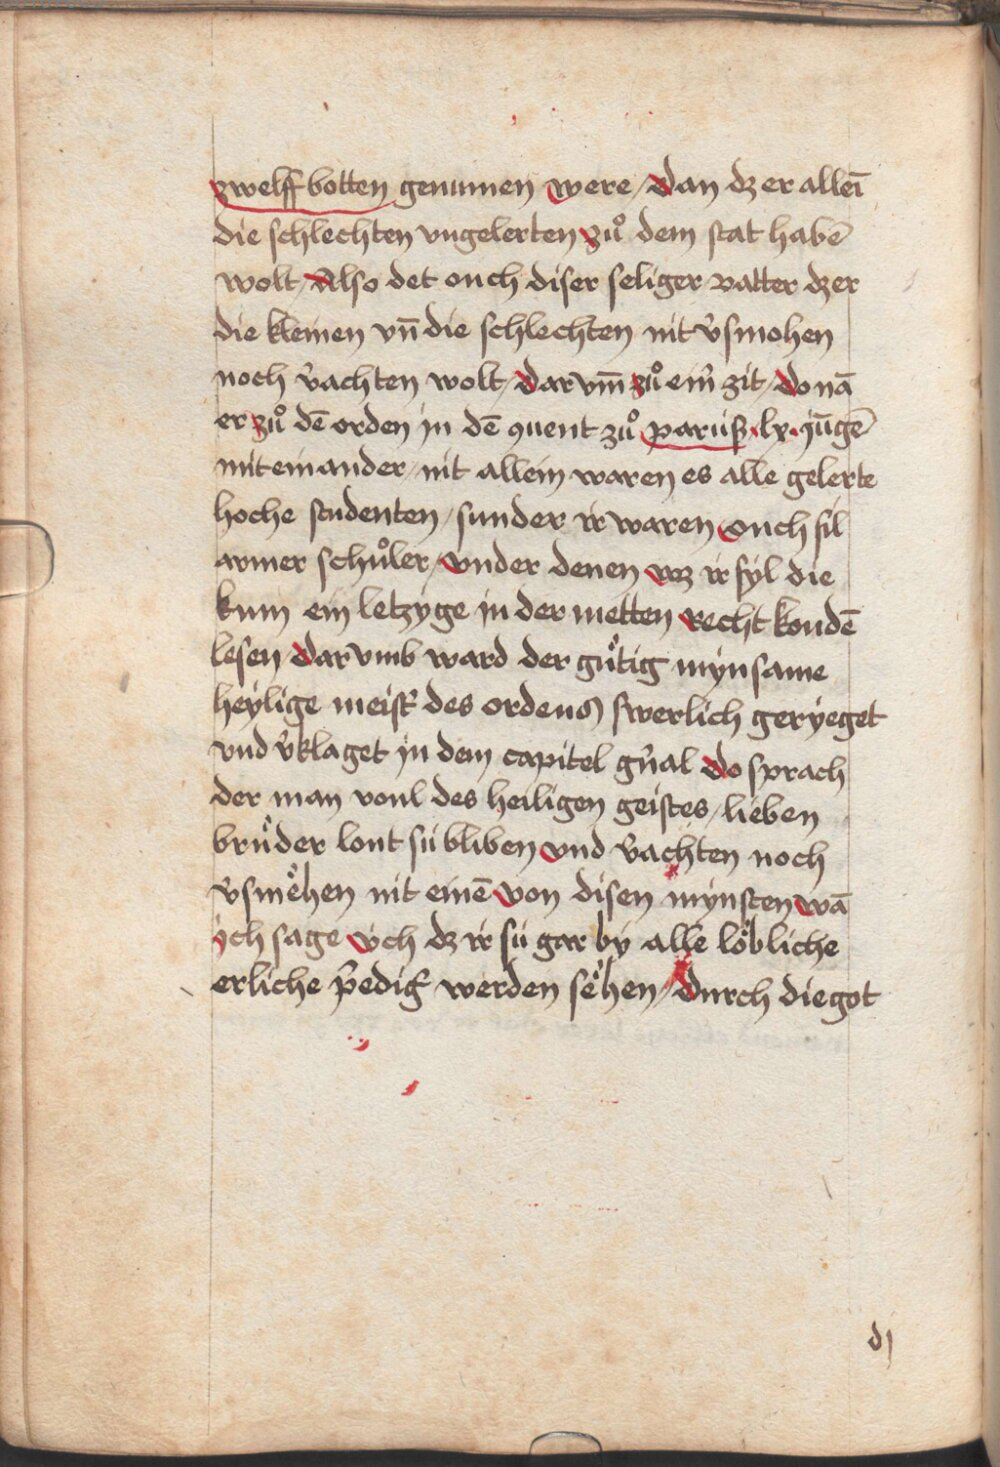 zwelff botten genumen were / Dan dz er alleī
die schlechten vngelerten zuͦ dem stat habē
wolt / Also det ouch diser seliger vatter dz er
die kleinen vn̄ die schlechten nit v̉smohen
noch v̉achten wolt / Dar vm̄ zuͦ ein̉ zit / Do nā
er zuͦ dē orden jn dē ꝯuent zuͦ pariiß · lx · jūgē
mit einander / nit allein waren es alle gelerte
hoche studenten / sunder ir waren Ouch fil
armer schuͦler / Vnder denen wz ir fyl die
kum ein letzyge jn der metten recht kondē
lesen Dar vmb ward der guͤtig mynsame
heylige meist̉ des ordens swerlich geryeget
vnd v̉klaget jn dem capitel gn̉al Do sprach
der man voul des heiligen geistes / lieben
bruͤder lont sü bliben Vnd v̉achten noch
v̉smeͤhen nit einē Von disen mynsten wā
jch sage v́ch dz ir sü gar by alle loͤbliche
erliche p̉dig̉ werden seͤhen / Durch die got
dj